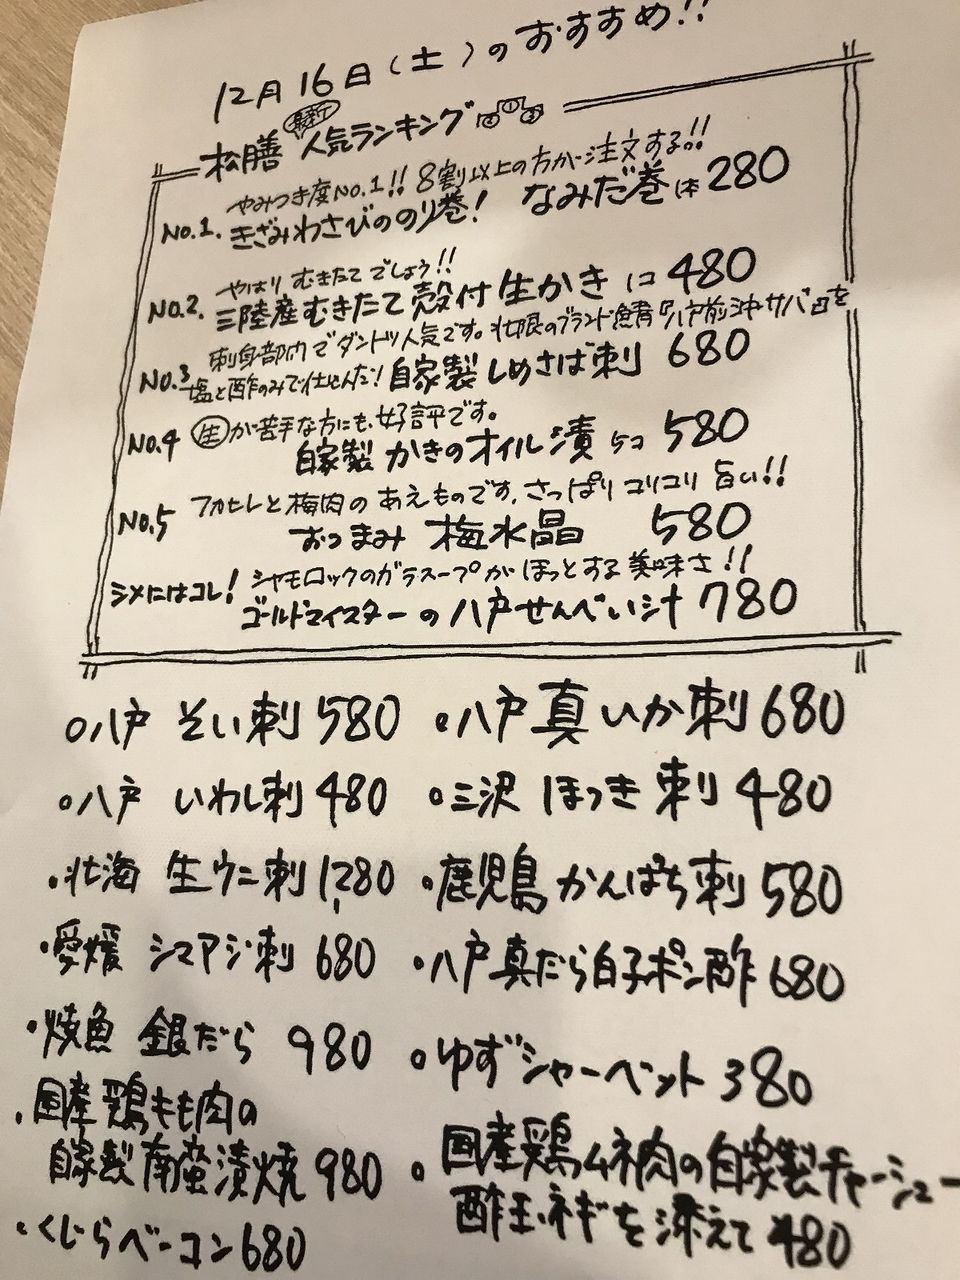 12月16日(土)のおすすめ!!
松膳 最新 人気ランキング ② ① ③
やみつき度No.1!! 8割以上の方が注文する!!
No.1. きざみわさびののり巻! なみだ巻 1本 280
やはり むきたて でしょう!!
No.2. 三陸産むきたて 殻付 生かき 1コ 480
刺身部門でダントツ人気です。北限のブランド鯖『八戸前沖サバ』を
No.3 塩と酢のみで仕込んだ! 自家製しめさば刺 680
No.4 生が苦手な方にも好評です。
自家製 かきのオイル漬 5コ 580
フカヒレと梅肉の あえものです。さっぱり コリコリ 旨い!!
No.5 おつまみ 梅水晶 580
シメにはコレ! シャモロックのガラスープが ほっとする 美味さ!!
ゴールドマイスターの八戸せんべい汁 780
・八戸 そい刺 580 ・八戸 真いか刺 680
・八戸 いわし刺 480 ・三沢 ほっき刺 480
・北海 生ウニ刺 1,280 ・鹿児島 かんぱち刺 580
・愛媛 シマアジ刺 680 ・八戸真だら白子ポン酢 680
・焼魚 銀だら 980 ・ゆずシャーベット 380
・国産鶏もも肉の
自家製南蛮漬焼 980
・国産鶏ムネ肉の自家製チャーシュー
酢玉ネギを添えて 480
・くじらベーコン 680